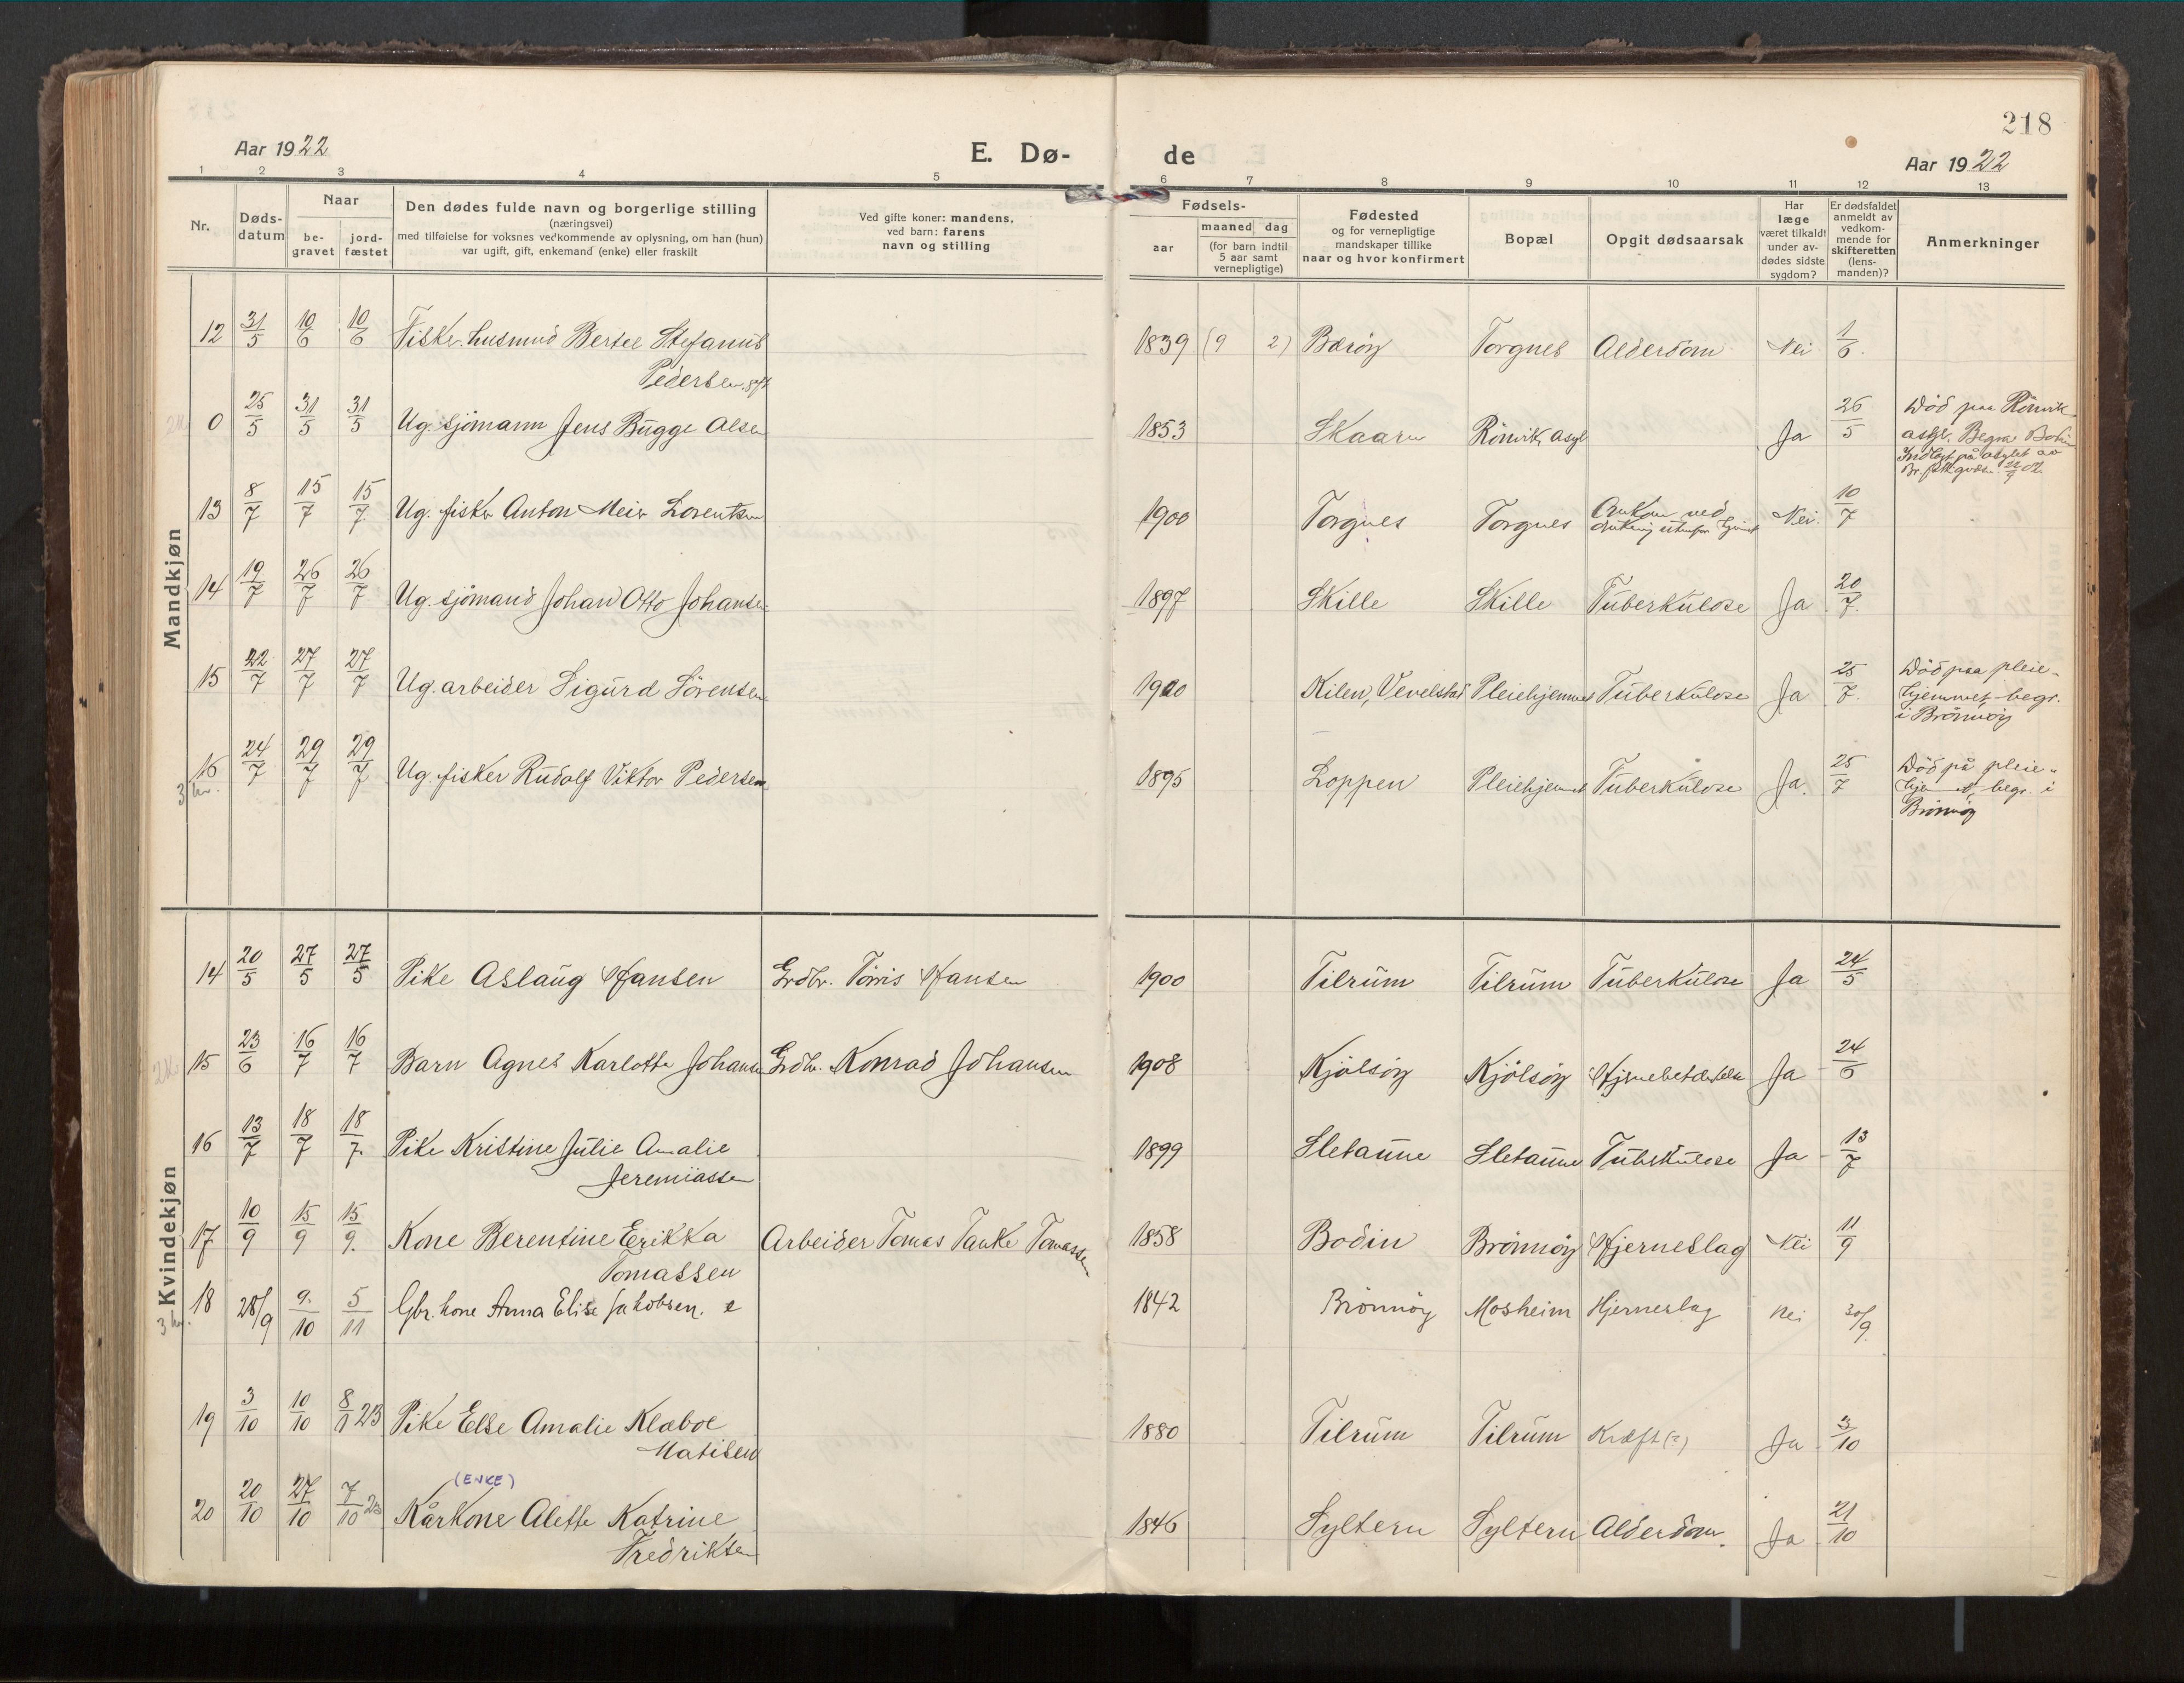 218
Aar 1922
E. Dø-
de
Aar 1922
1 2 3 4 5 6 7 8 9 10 11 12 13
Nr.
Døds-
datum
Naar
be-
gravet
jord-
fæstet
Den dødes fulde navn og borgerlige stilling
(næringsvei)
med tilføielse for voksnes vedkommende av oplysning, om han (hun)
var ugift, gift, enkemand (enke) eller fraskilt
Ved gifte koner: mandens,
ved barn: farens
navn og stilling
Fødsels-
aar
maaned dag
(for barn indtil
5 aar samt
vernepligtige)
Fødested
og for vernepligtige
mandskaper tillike
naar og hvor konfirmert
Bopæl
Opgit dødsaarsak
Har
læge
været tilkaldt
under av-
dødes sidste
sygdom?
Er dødsfaldet
anmeldt av
vedkom-
mende for
skifteretten
(lens-
manden)?
Anmerkninger
Mandkjøn
12 31/5 10/6 10/6 Fisker. husmand Bertel Stefanus 1839 (9 2) Torgnes Alderdom Nei 1/6
Pedersen
0 25/5 31/5 31/5 Ug. sjømann Jens Bugge Olsen 1853 Rönvik Asyl Ja 26/5 Död paa Rönvik
asyl. Begra Bodin
Indlagt på asylet av
13 8/7 15/7 15/7 Ug. fisker Anton Meier Lorentsen 1900 Torgnes Torgnes ved Nei. 10/7
14 19/7 26/7 26/7 Ug. sjömand Johan Otto Johansen 1897 Skille Skille Tuberkulose Ja 20/7.
15 22/7 27/7 27/7 Ug. arbeider Sigurd Sörensen 1900 Kilen, Vevelstad Pleiehjemmet Tuberkulose Ja 25/7. Död paa pleie-
hjemmet, begr.
i Brönnöy
16 24/7 29/7 29/7 Ug. fisker Rudolf Viktor Pedersen 1895 Loppen Pleiehjemmet Tuberkulose Ja. 25/7 Död på pleie-
hjemmet, begr. i
Brönnöy
3 kr.
Kvindekjøn
14 20/5 27/5 27/5 Pike Aslaug Hansen Grdbr. Törris Hansen 1900 Tilrum Tilrum Tuberkulose Ja 24/5
15 23/6 16/7 16/7 Barn Agnes Karlotte Johansen Grdbr. Konrad Johansen 1908 Kjölsöy Kjölsöy Hjernebetændelse Ja 24/6
16 13/7 18/7 18/7. Pike Kristine Julie Amalie 1899 Sletaune Sletaune Tuberkulose Ja 13/7
Jeremiassen
17 10/9 15/9 15/9. Kone Berentine Erikka Arbeider Tomas Tanke Tomassen 1858 Bodin Brönnöy Hjerneslag Nei 11/9
Tomassen
18 28/9 9./10 5/11 Gbr. kone Anna Elise Jakobsen. e 1842 Brönnöy Mosheim Hjerneslag Nei 30/9.
3 kr.
19 3/10 10/10 8/1 23 Pike Else Amalie Klæboe 1880 Tilrum Tilrum Kræft (?) Ja 3/10
Matisen
(ENKE)
20 20/10 27/10 7/10 23 Kårkone Alette Katrine 1846 Syltern Syltern Alderdom. Ja 21/10
Fredriksen